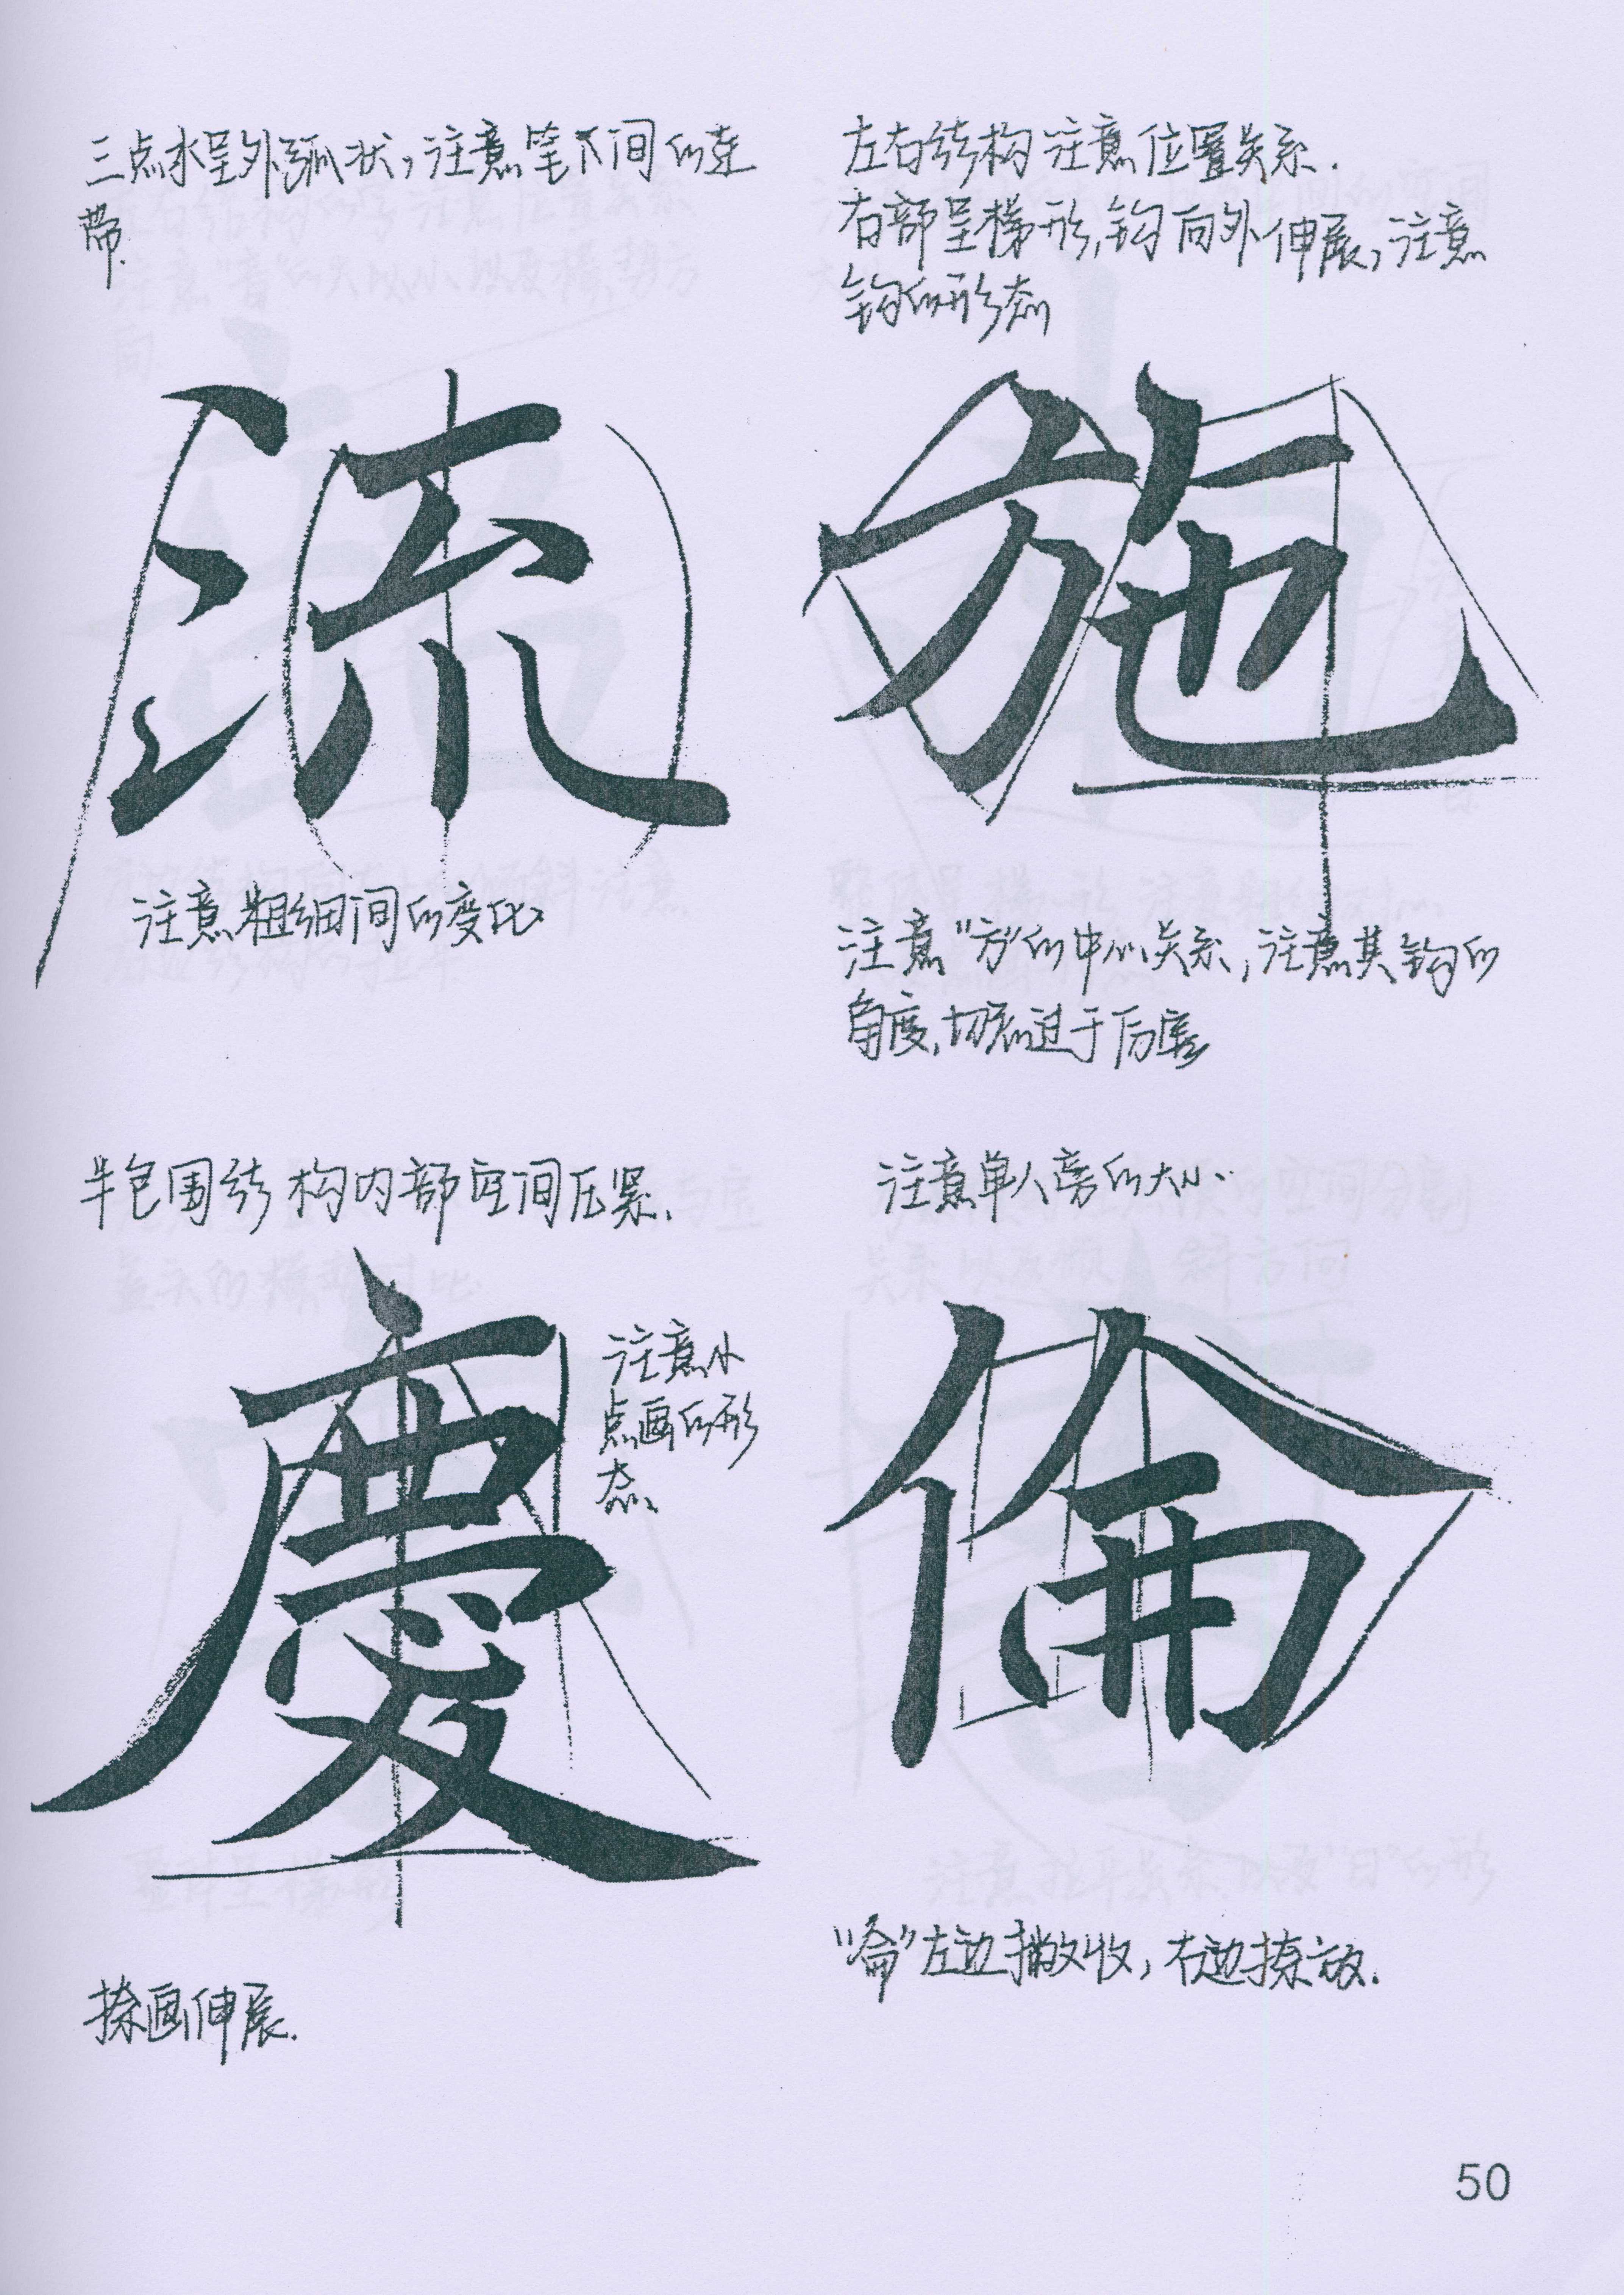 三点水呈外弧状，注意笔下间的连
带.
流
注意粗细间的变比
左右结构注意位置关系.
右部呈梯形,钩向外伸展,注意
钩的形态
施
注意“方”的中心关系,注意其钩的
角度,切忌过于伸展
半包围结构内部空间压紧.
慶
注意小
点画的形
态
捺画伸展.
注意单人旁的大小.
倫
“侖”左边撇收，右边捺放.
50